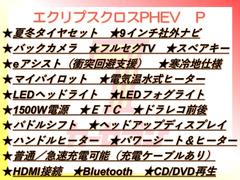 エクリプスクロスPHEV P
★夏冬タイヤセット ★9インチ社外ナビ
★バックカメラ ★フルセグTV ★スペアキー
★eアシスト（衝突回避支援） ★寒冷地仕様
★マイパイロット ★電気温水式ヒーター
★LEDヘッドライト ★LEDフォグライト
★1500W電源 ★ＥＴＣ ★ドラレコ前後
★パドルシフト ★ヘッドアップディスプレイ
★ハンドルヒーター ★パワーシート＆ヒーター
★普通／急速充電可能（充電ケーブルあり）
★HDMI接続 ★Bluetooth ★CD/DVD再生